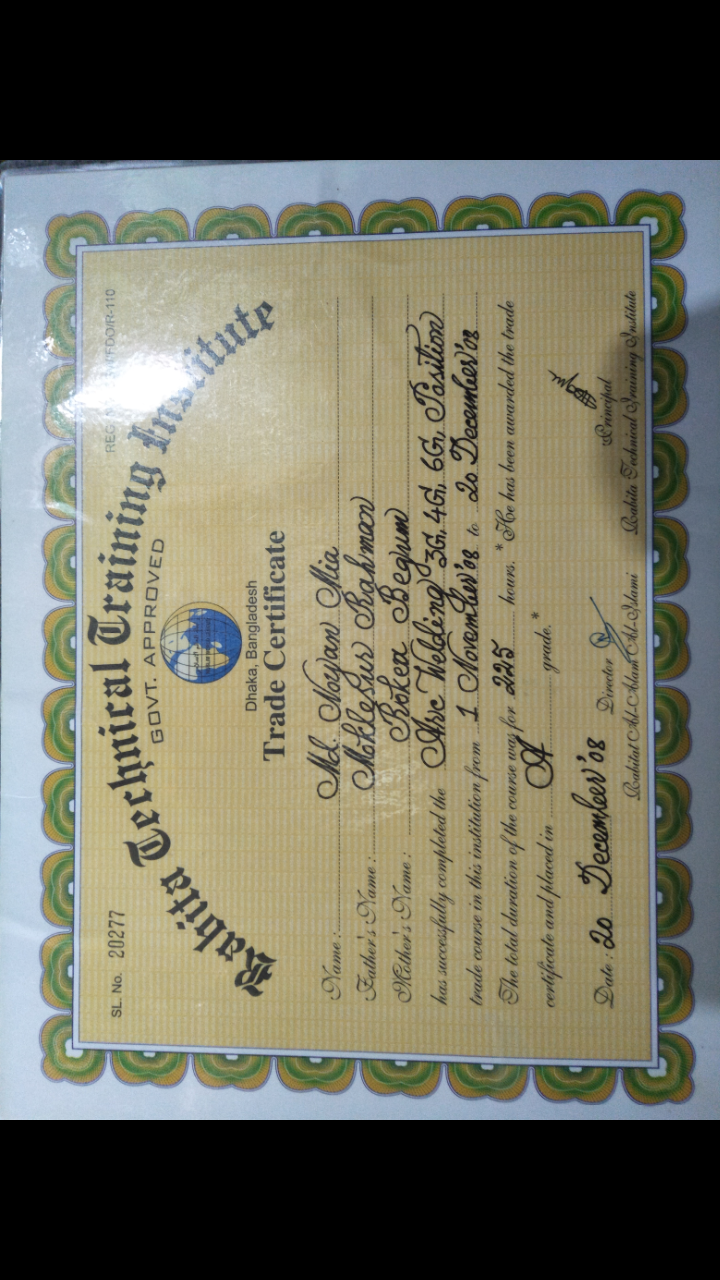 SL. No. 20277
Rabita Technical Training Institute
GOVT. APPROVED
Dhaka, Bangladesh
Trade Certificate
Name : Md. Noyan Mia
Father's Name : Moklesur Rahman
Mother's Name : Rokea Begum
has successfully completed the Arc Welding 3G, 4G, 6G, Position
trade course in this institution from 1 November'08 to 20 December'08
The total duration of the course was for 225 hours. * He has been awarded the trade
certificate and placed in A grade. *
Date : 20 December'08
Director
Rabitat Al-Alam Al-Islami
Principal
Rabita Technical Training Institute